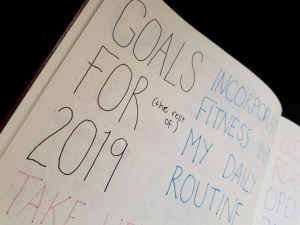 GOALS
FOR
(the rest
of)
2019
INCORPOR
FITNESS
MY DAILY
ROUTINE
TAKE